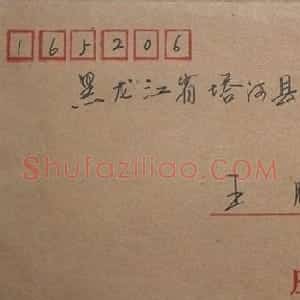 165206
黑龙江省塔河县
Shufaziliao.com
王